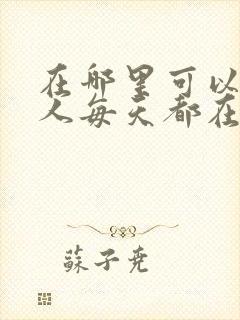 在哪里可以
人每天都在
蘇子尧